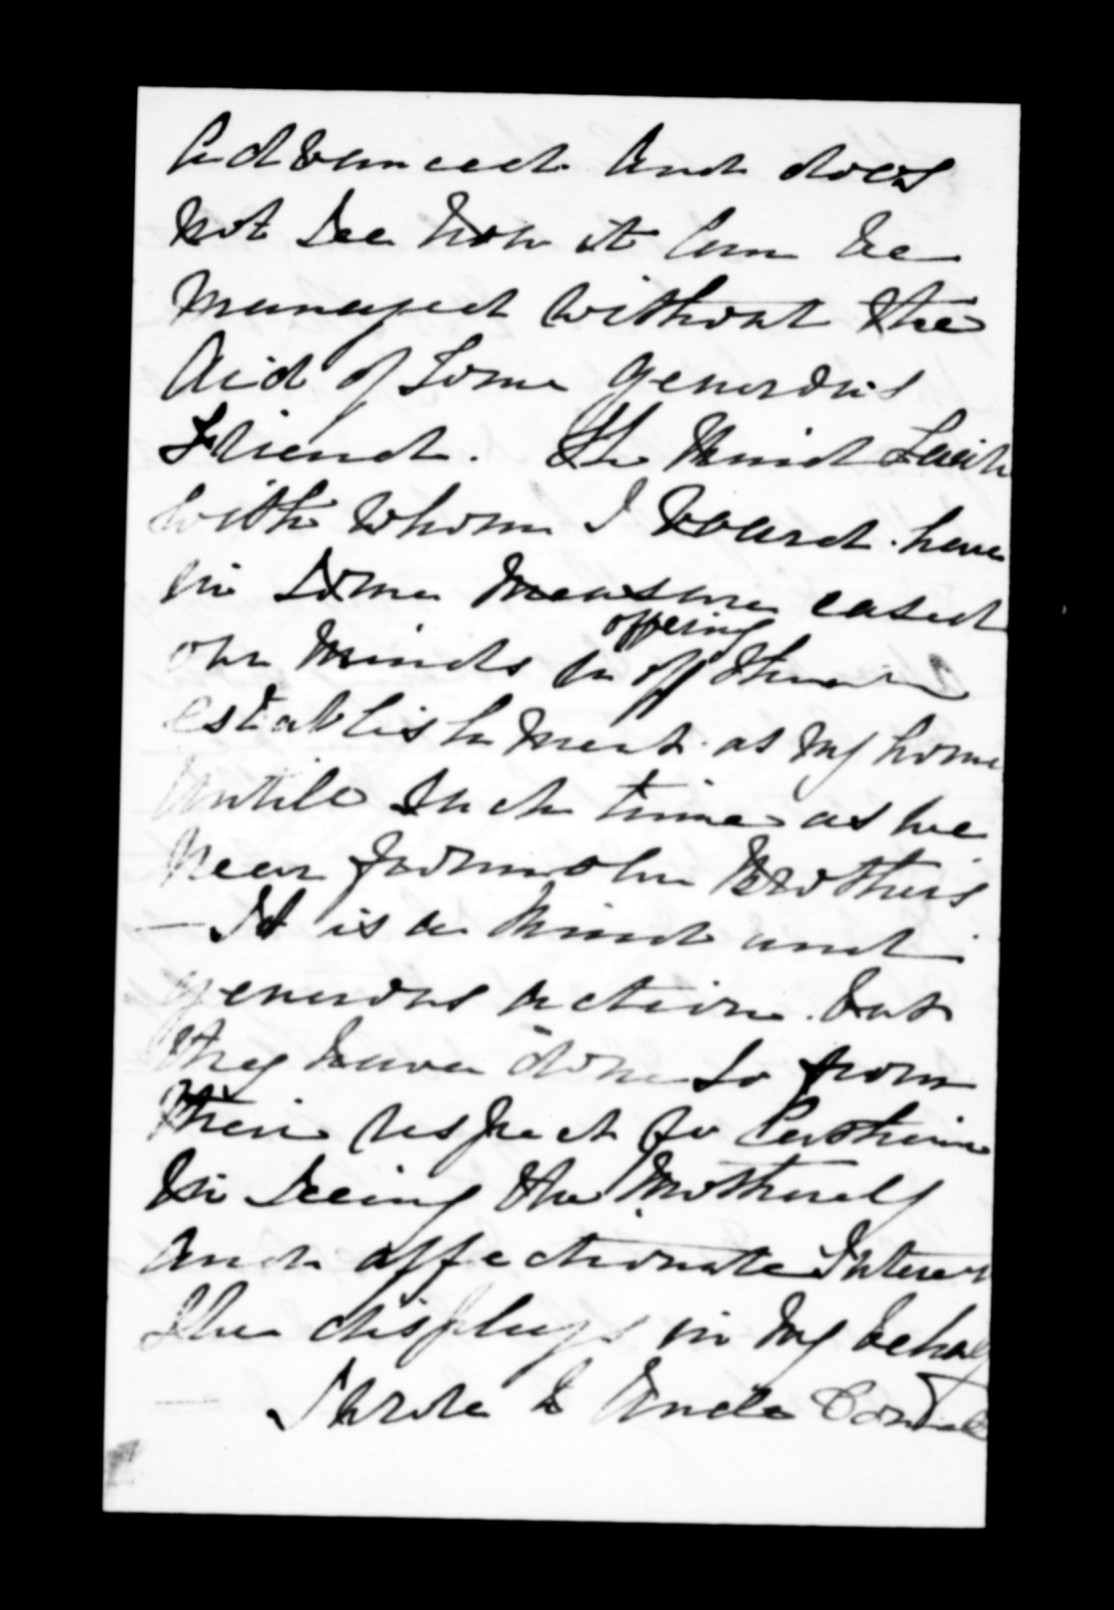 advanced and does
not see how it can be
managed without the
Aid of some generous
Friend. The Kind
with whom I board have
in some measure eased
our minds in offering their
establishment as my home
untill such time as we
hear from our Brothers
— It is a kind and
generous action but
they have done so from
their respect to
In seeing the Motherly
and affectionate Interest
she displays in my behalf
— I wrote to Uncle